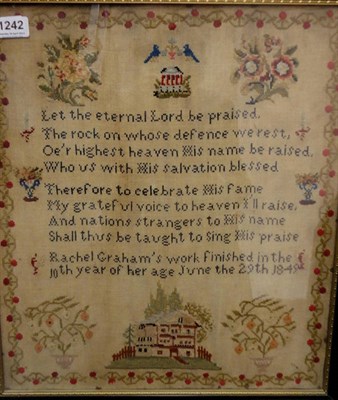 1242
Let the eternal Lord be praised.
The rock on whose defence we rest,
Oe'r highest heaven His name be raised.
Who us with His salvation blessed
Therefore to celebrate His fame
My grateful voice to heaven I'll raise,
And nations strangers to His name
Shall thus be taught to Sing His praise
Rachel Graham's work finished in the
10th year of her age June the 29th 1849